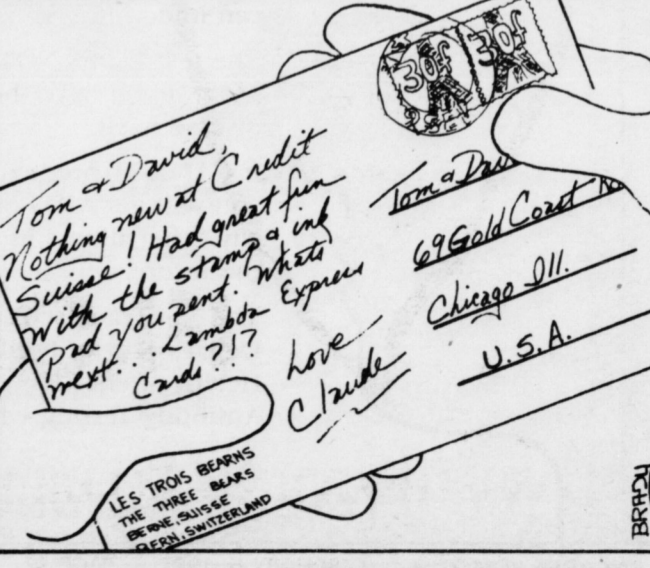 Tom & David,
Nothing new at Credit
Suisse! Had great fun
With the stamp & ink
Pad you sent. Whats
next... Lambda Express
Cards?!?
Love
Claude
30f 30f
Tom & Dav
69 Gold Coast
Chicago Ill.
U.S.A.
LES TROIS BEARNS
THE THREE BEARS
BERNE, SUISSE
BERN, SWITZERLAND
BRADY